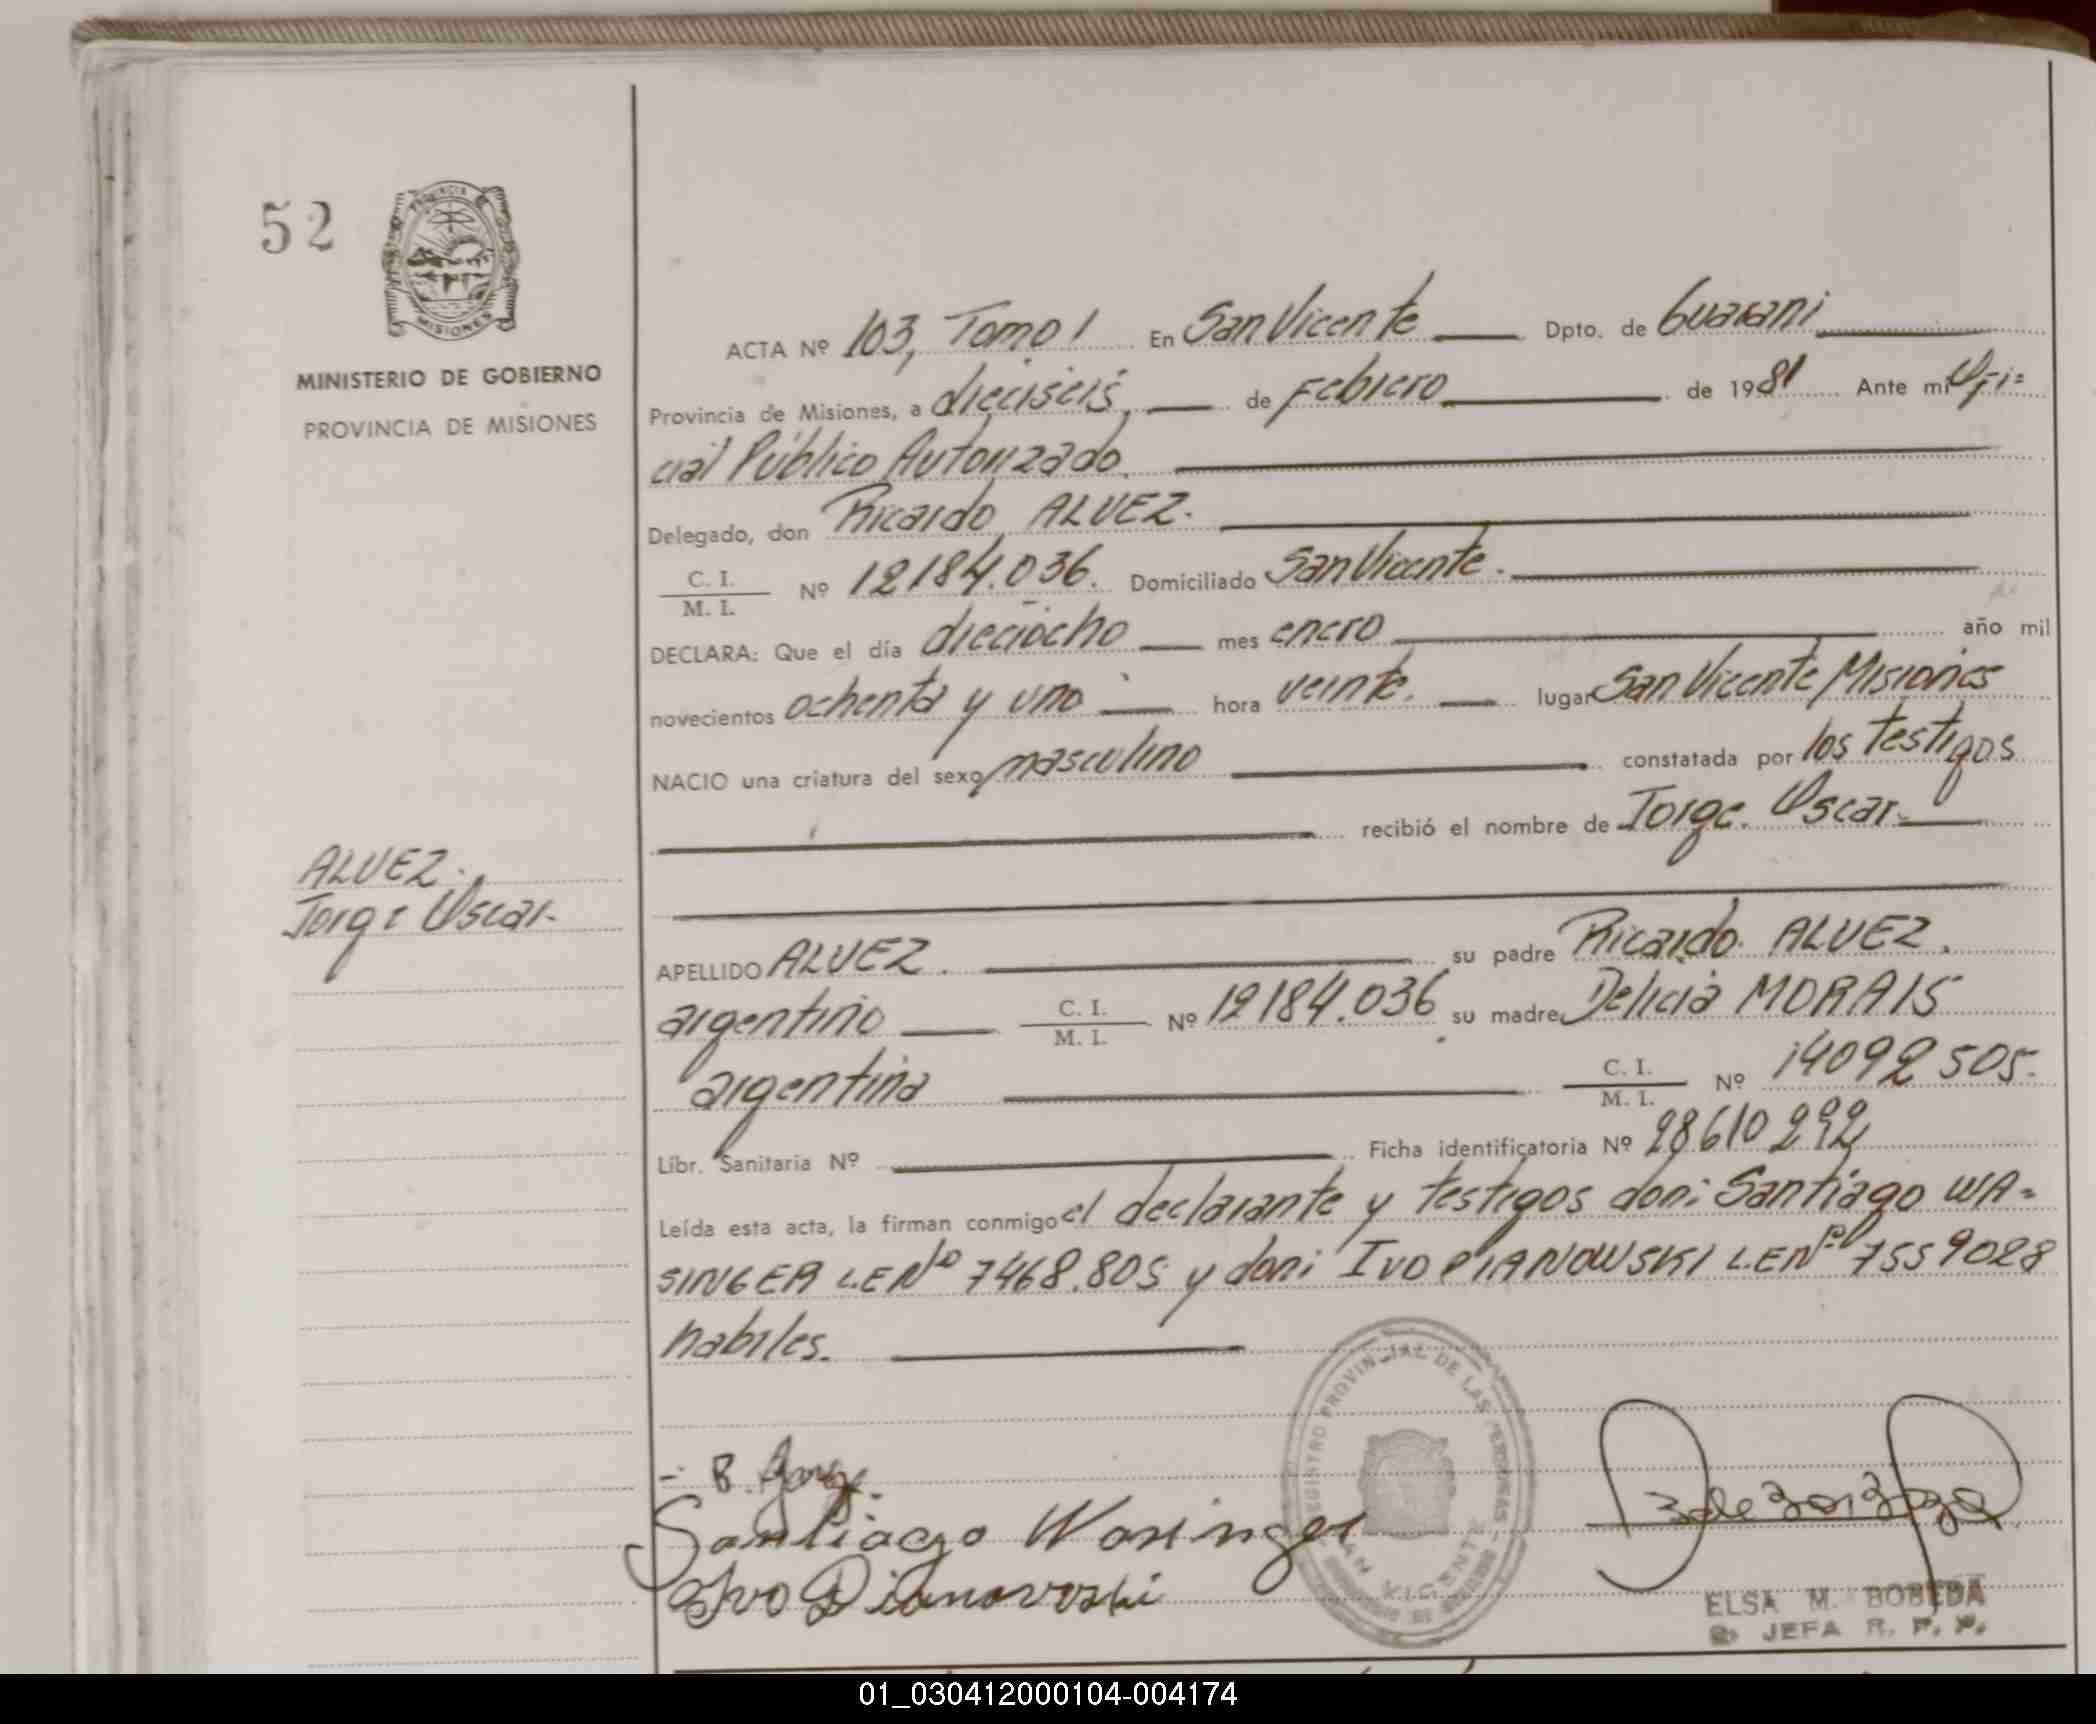 52
PROVINCIA
MISIONES
MINISTERIO DE GOBIERNO
PROVINCIA DE MISIONES
ACTA Nº 103, Tomo I En San Vicente Dpto. de Guarani
Provincia de Misiones, a dieciseis, de Febrero de 1981 Ante mi Ofi=
cial Público Autorizado.
Delegado, don Ricardo ALVEZ.
C. I.
M. I. Nº 12184.036. Domiciliado San Vicente.
DECLARA: Que el día dieciocho mes enero año mil
novecientos ochenta y uno hora veinte. lugar San Vicente Misiones
NACIO una criatura del sexo masculino constatada por los testigos
recibió el nombre de Jorge Oscar.
ALVEZ.
Jorge Oscar.
APELLIDO ALVEZ. su padre Ricardo ALVEZ.
argentino C. I.
M. I. Nº 12184.036 su madre Delicia MORAIS
argentina C. I.
M. I. Nº 14092505.
Libr. Sanitaria Nº Ficha identificatoria Nº 28610292
Leída esta acta, la firman conmigo el declarante y testigos don: Santiago WA=
SINGER L.E Nº 7468.805 y don: Ivo PIANOWSKI L.E Nº 7559028
habiles.
Santiago Wasinger
Ivo Pianowski
REGISTRO PROVINCIAL DE LAS PERSONAS
SAN VICENTE
ELSA M. BOBEDA
JEFA R. P. P.
01_030412000104-004174